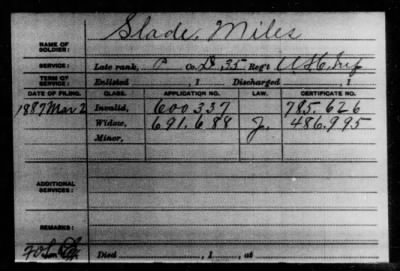 Slade, Miles
NAME OF SOLDIER:
SERVICE: Late rank, P Co. D, 35 Reg't U.S.C. Inf
TERM OF SERVICE: Enlisted , 1 Discharged , 1
DATE OF FILING. CLASS. APPLICATION NO. LAW. CERTIFICATE NO.
1887 Mar 2 Invalid, 600.337 785.626
Widow, 691.688 J. 486.995
Minor,
ADDITIONAL SERVICES:
REMARKS:
Died , 1 , at